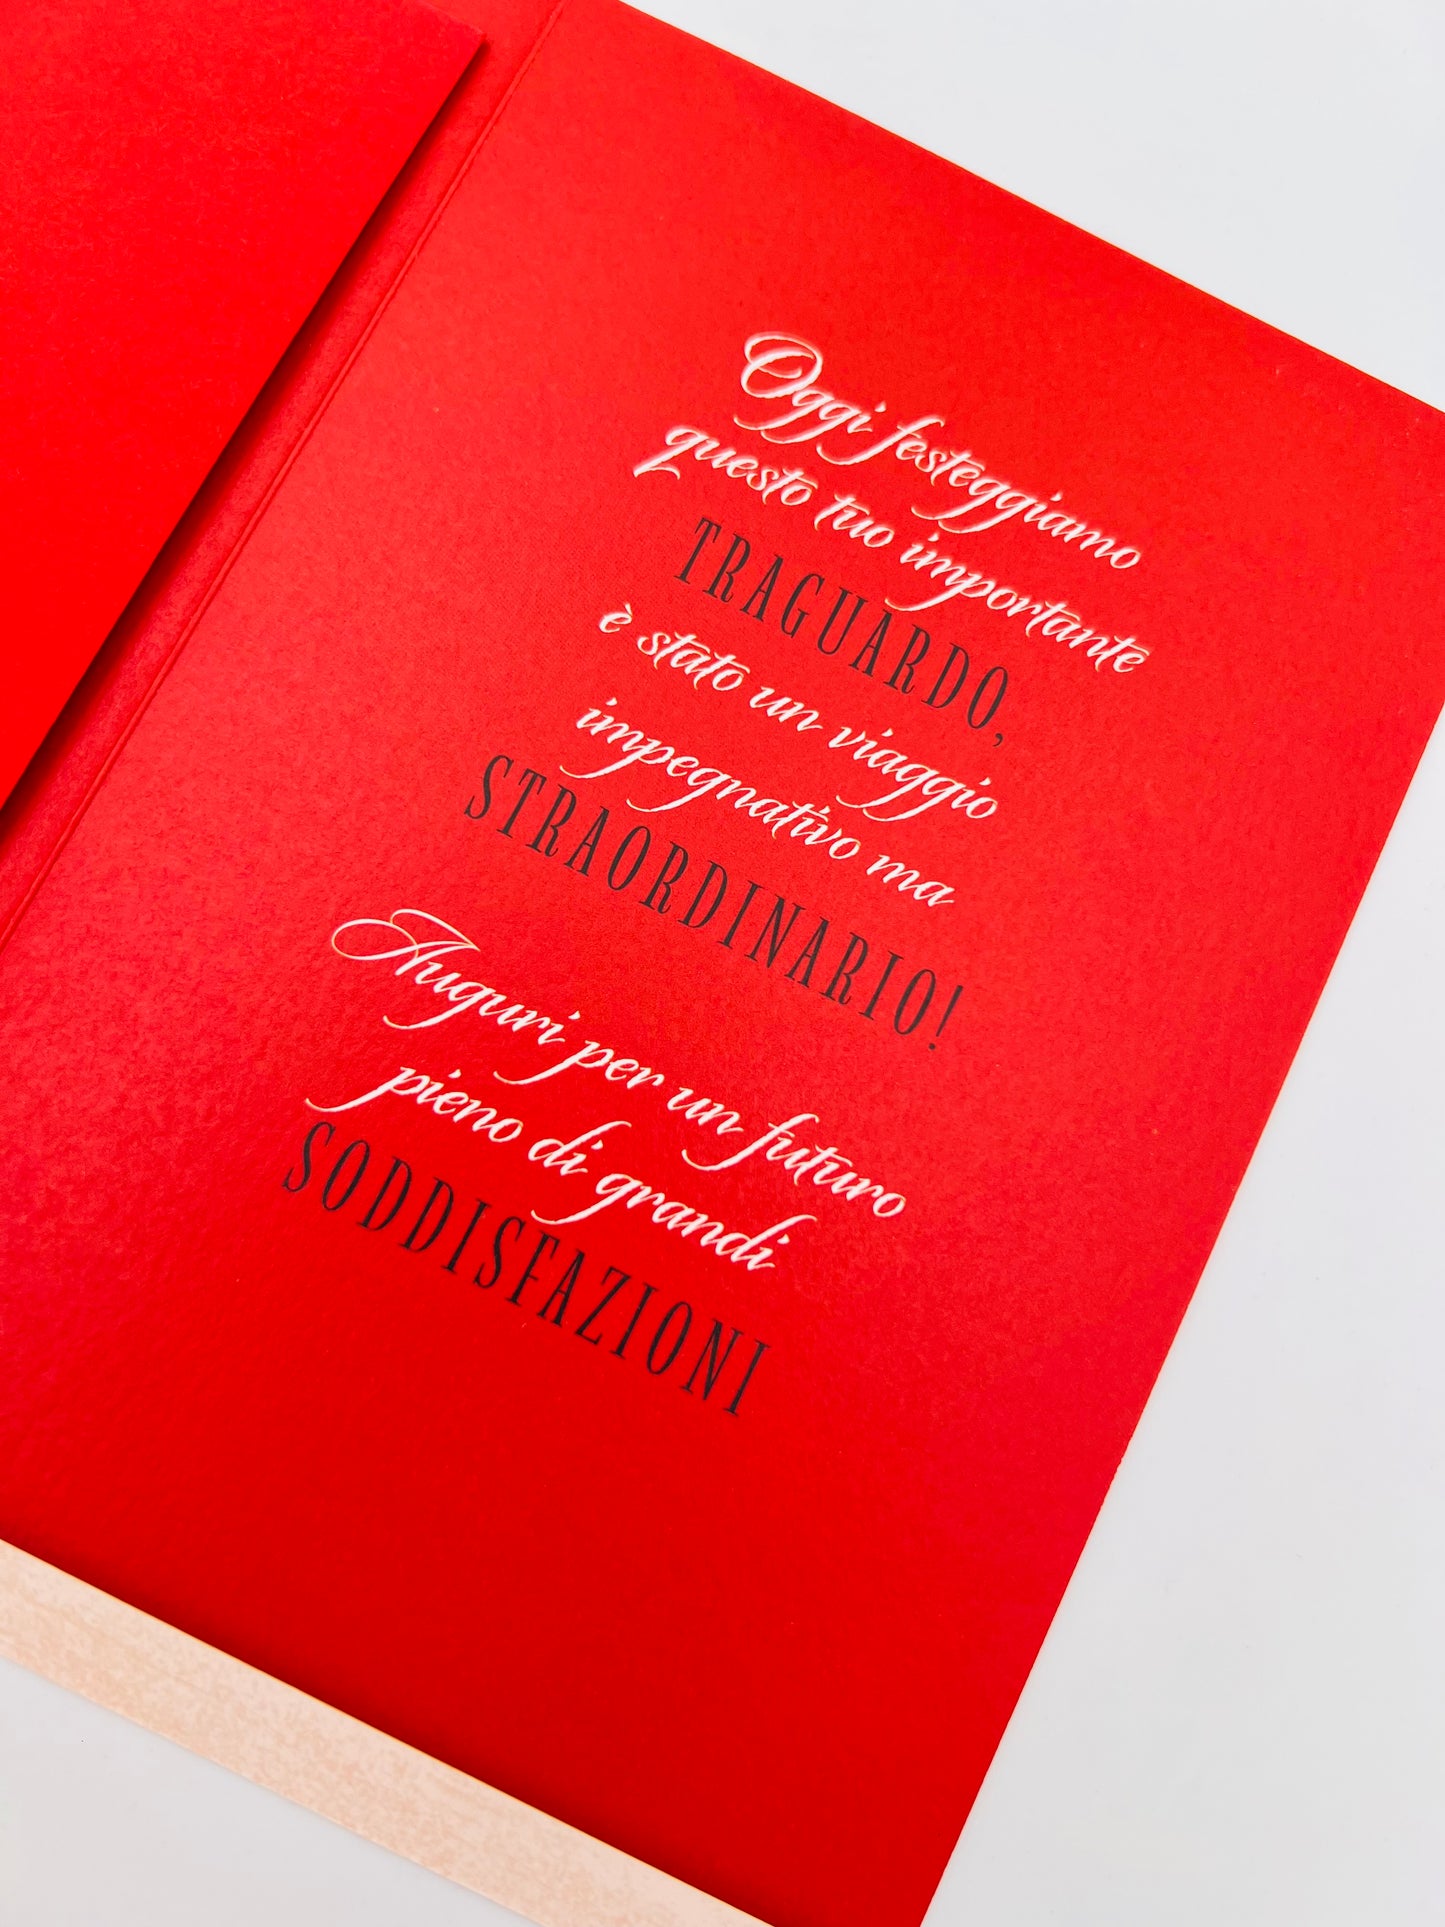 Oggi festeggiamo
questo tuo importante
TRAGUARDO,
è stato un viaggio
impegnativo ma
STRAORDINARIO!
Auguri per un futuro
pieno di grandi
SODDISFAZIONI